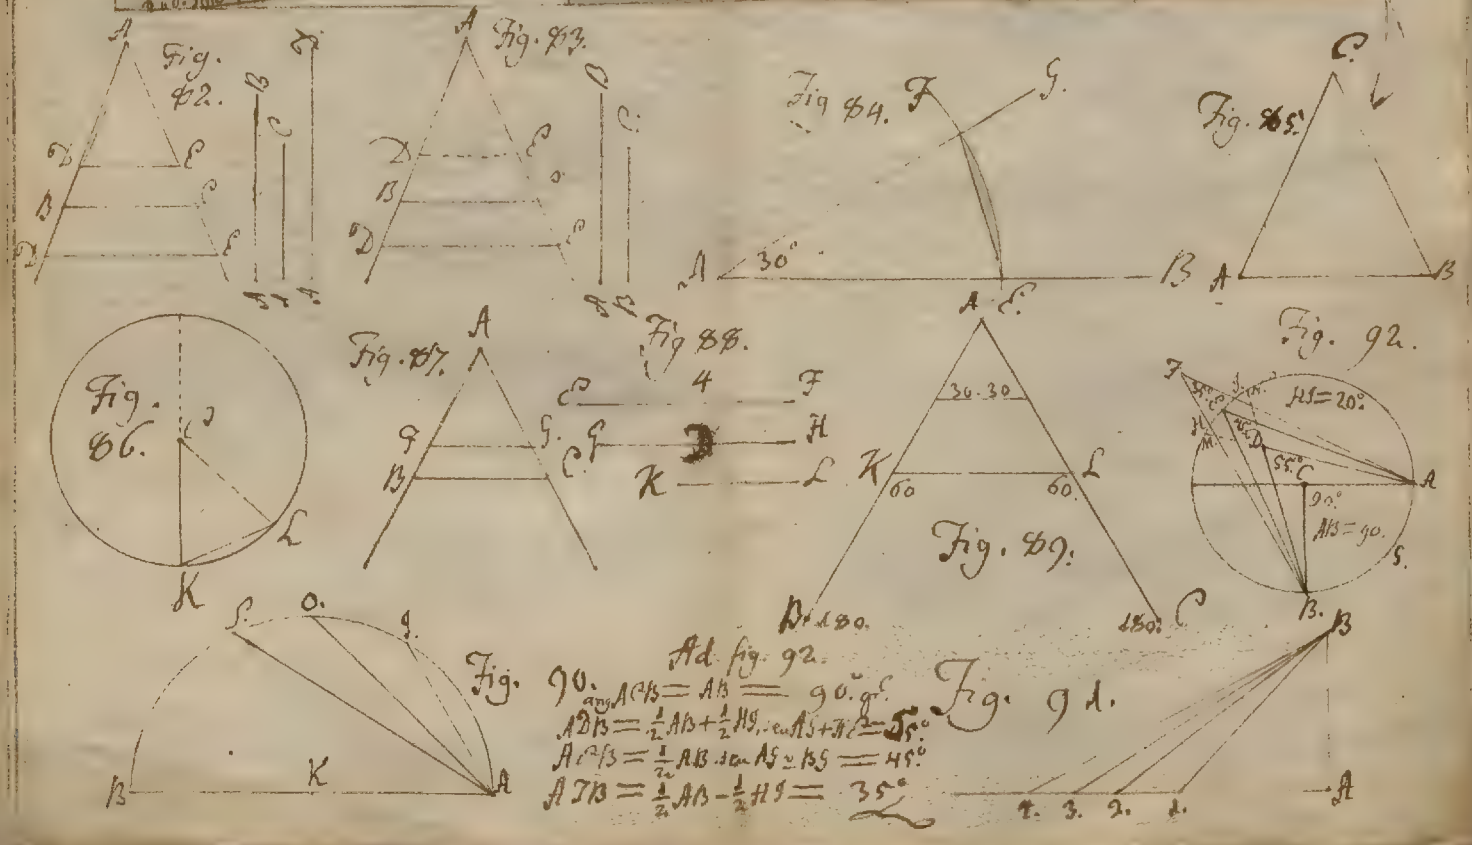 A
Fig.
82.
B
C
D
E
B
C
D
E
A
Fig. 83.
B
C.
D
E
B
D
C
A
B
Fig 84.
F
G.
A
30°
B
E.
C.
Fig. 85.
A
B
Fig.
86.
C
L
K
Fig. 87.
A
G
G.
B
C.
Fig 88.
E
4
F
G
H
K
L
A
30.30
K
L
60
60
Fig. 89.
B
180.
180.
C
Fig. 92.
F
HI=20°.
35°
H
M
D
55°
C
A
90°
AB=90.
G.
B.
G.
O.
I.
Fig. 90.
B
K
A
Ad. fig. 92.
ang ACB = AB = 90°.
ADB = 1/2 AB + 1/2 HI, = 55°
AEB = 1/2 AB = 45°
AFB = 1/2 AB - 1/2 HI = 35°
Fig. 91.
B
4. 3. 2. 1.
A